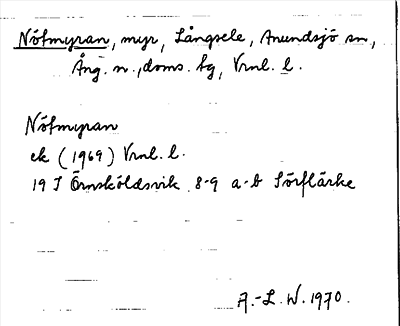 Nötmyran, myr, Långsele, Anundsjö sn,
Ång. n., doms. bg, Vrnl. l.
Nötmyran
ek (1969) Vrnl. l.
19 I Örnsköldsvik 8-9 a-b Sörflärke
A.-L. W. 1970.